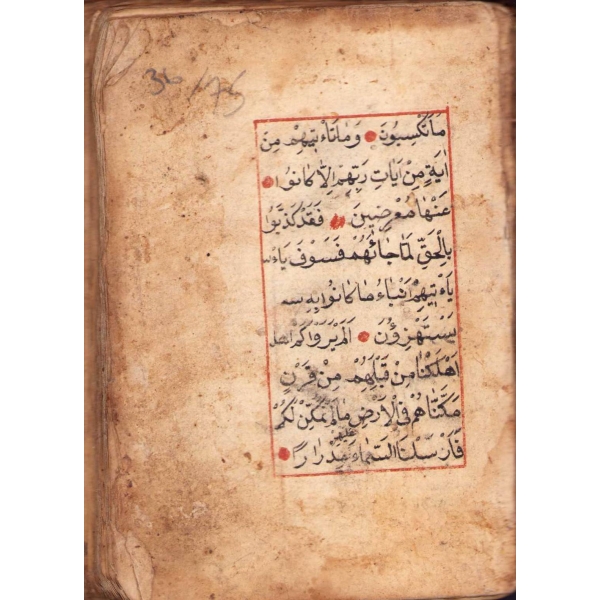 36 / 175
مَا تَكْسِبُونَ وَمَا تَأْتِيهِمْ مِنْ
اٰيَةٍ مِنْ اٰيَاتِ رَبِّهِمْ اِلَّا كَانُوا
عَنْهَا مُعْرِضِينَ فَقَدْ كَذَّبُوا
بِالْحَقِّ لَمَّا جَائَهُمْ فَسَوْفَ يَاءْ
يَاءْتِيهِمْ اَنْبَاءُ مَا كَانُوا بِهِ
يَسْتَهْزِؤُنَ اَلَمْ يَرَوْا كَمْ
اَهْلَكْنَا مِنْ قَبْلِهِمْ مِنْ قَرْنٍ
مَكَّنَّاهُمْ فِى الْاَرْضِ مَا لَمْ نُمَكِّنْ لَكُمْ
فَاَرْسَلْنَا السَّمَاءَ عَلَيْهِمْ مِدْرَارًا